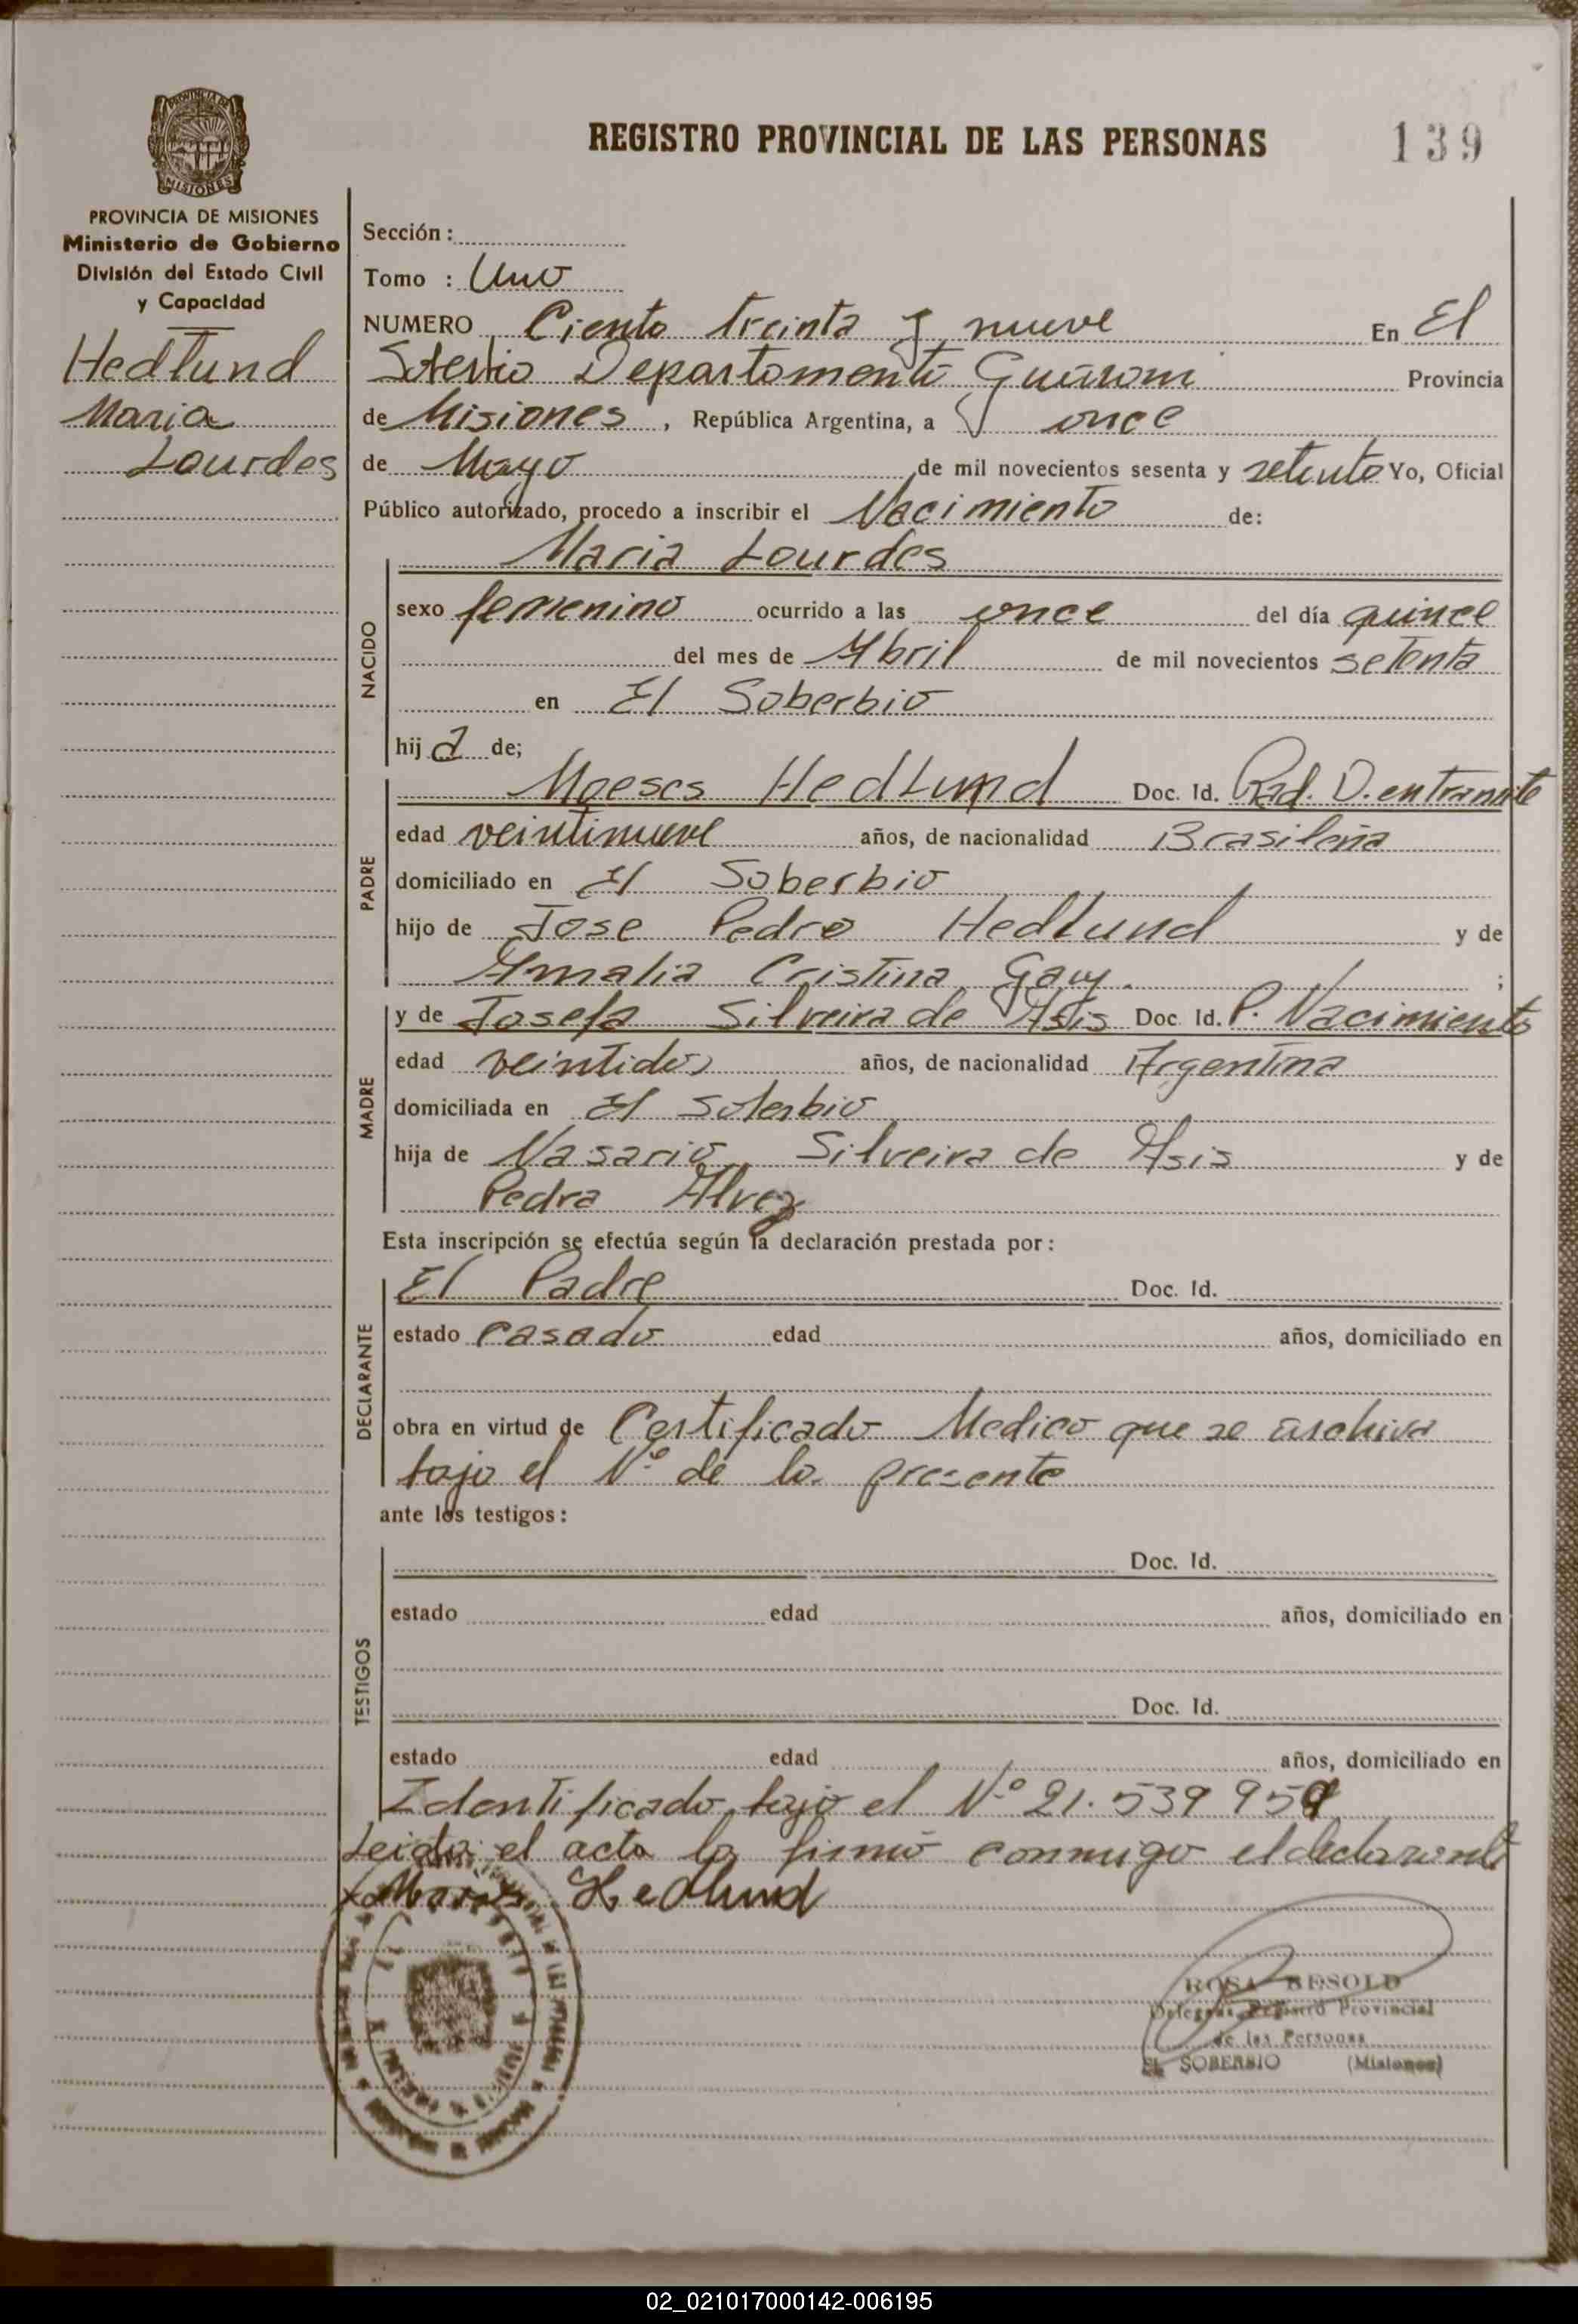 REGISTRO PROVINCIAL DE LAS PERSONAS
139
PROVINCIA DE MISIONES
Ministerio de Gobierno
División del Estado Civil
y Capacidad
Hedlund
Maria
Lourdes
Sección :
Tomo : Uno
NUMERO Ciento treinta y nueve En El
Soberbio Departamento Guarani Provincia
de Misiones, República Argentina, a once
de Mayo de mil novecientos sesenta y setenta Yo, Oficial
Público autorizado, procedo a inscribir el Nacimiento de:
Maria Lourdes
NACIDO
sexo femenino ocurrido a las once del día quince
del mes de Abril de mil novecientos setenta
en El Soberbio
hij a de;
PADRE
Moeses Hedlund Doc. Id. Rad. D. en tramite
edad veintinueve años, de nacionalidad Brasileña
domiciliado en El Soberbio
hijo de Jose Pedro Hedlund y de
Amalia Cristina ;
MADRE
y de Josefa Silveira de Asis Doc. Id. P. Nacimiento
edad veintidos años, de nacionalidad Argentina
domiciliada en El Soberbio
hija de Nasario Silveira de Asis y de
Pedra Alvez
Esta inscripción se efectúa según la declaración prestada por:
DECLARANTE
El Padre Doc. Id.
estado casado edad años, domiciliado en
obra en virtud de Certificado Medico que se archiva
bajo el Nº de la presente
ante los testigos:
TESTIGOS
Doc. Id.
estado edad años, domiciliado en
Doc. Id.
estado edad años, domiciliado en
Identificado bajo el Nº 21.539 959
Leida el acta la firmó conmigo el declarante
Hedlund
ROSA BESOLD
Delegada Registro Provincial
de las Personas
EL SOBERBIO (Misiones)
02_021017000142-006195